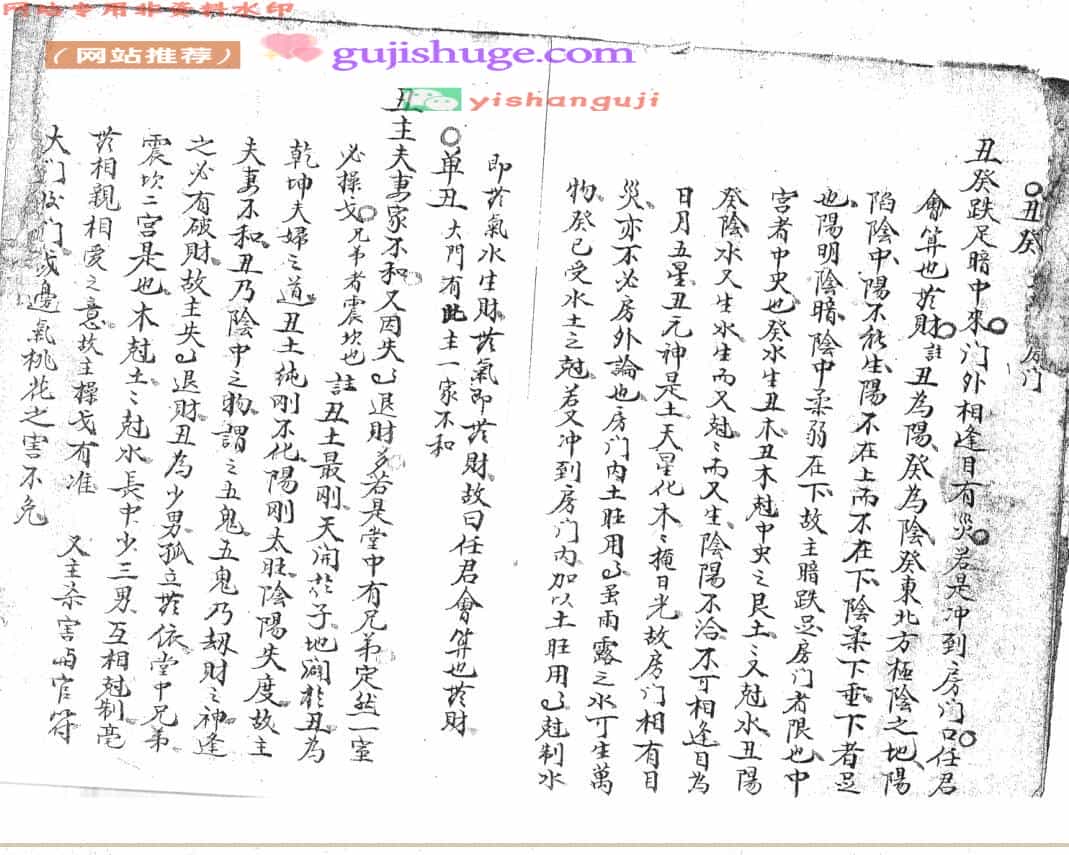 网站专用非资料水印
(网站推荐)
gujishuge.com
yishanguji
丑癸 房门
丑癸跌足暗中來門外相逢目有災若是冲到房門口任君
會算也苂財註丑為陽癸為陰癸東北方極陰之地陽
陷陰中陽不能生陽不在上而不在下陰柔下垂下者足
也陽明陰暗陰中柔弱在下故主暗跌足房门者限也中
宫者中央也癸水生丑木丑木尅中央之艮土々又尅水丑陽
癸陰水又生水生而又尅々而又生陰陽不洽不可相逢目為
日月五星丑元神是土天星化木々掩日光故房门相有目
災亦不必房外論也房门內土旺用之虽雨露之水丁生萬
物癸已受水土之尅若又冲到房门內加以土旺用之尅制水
即苂氣水生財苂氣即苂財故曰任君會算也苂財
单丑 大門有此主一家不和
丑主夫妻家不和又因失退財多若是堂中有兄弟定然一室
必操戈兄弟者震坎也註丑土最刚天開於子地闢於丑為
乾坤夫婦之道丑土純刚不化陽刚太旺陰陽失度故主
夫妻不和丑乃陰中之物謂之五鬼五鬼乃刼財之神逢
之必有破財故主失退財丑為少男孤立苂依堂中兄弟
震坎二宫是也木尅土々尅水長中少三男互相尅制亳
苂相親相爱之意故主操戈有准 又主杀害官符
大门 门或邊氣桃花之害不免